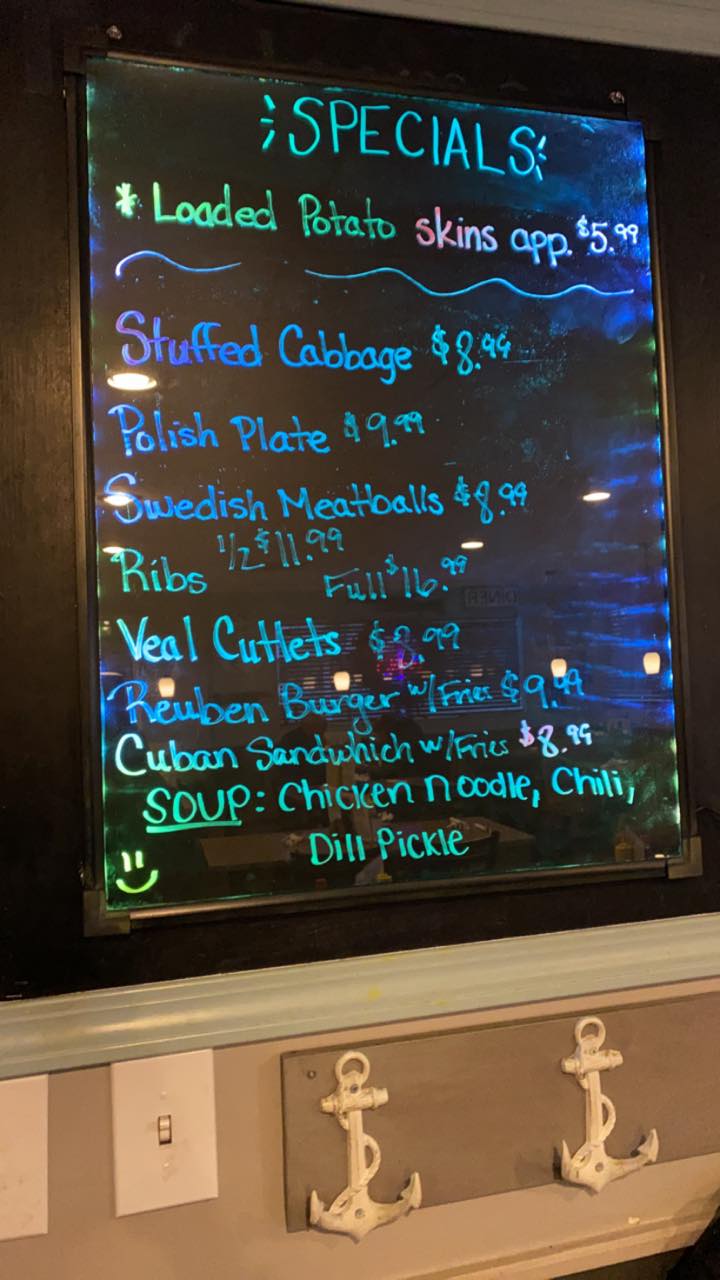 SPECIALS
* Loaded Potato skins app. $5.99
Stuffed Cabbage $8.99
Polish Plate $9.99
Swedish Meatballs $8.99
Ribs 1/2 $11.99 Full $16.99
Veal Cutlets $8.99
Reuben Burger w/Fries $9.99
Cuban Sandwhich w/Fries $8.99
SOUP: Chicken noodle, Chili,
Dill Pickle